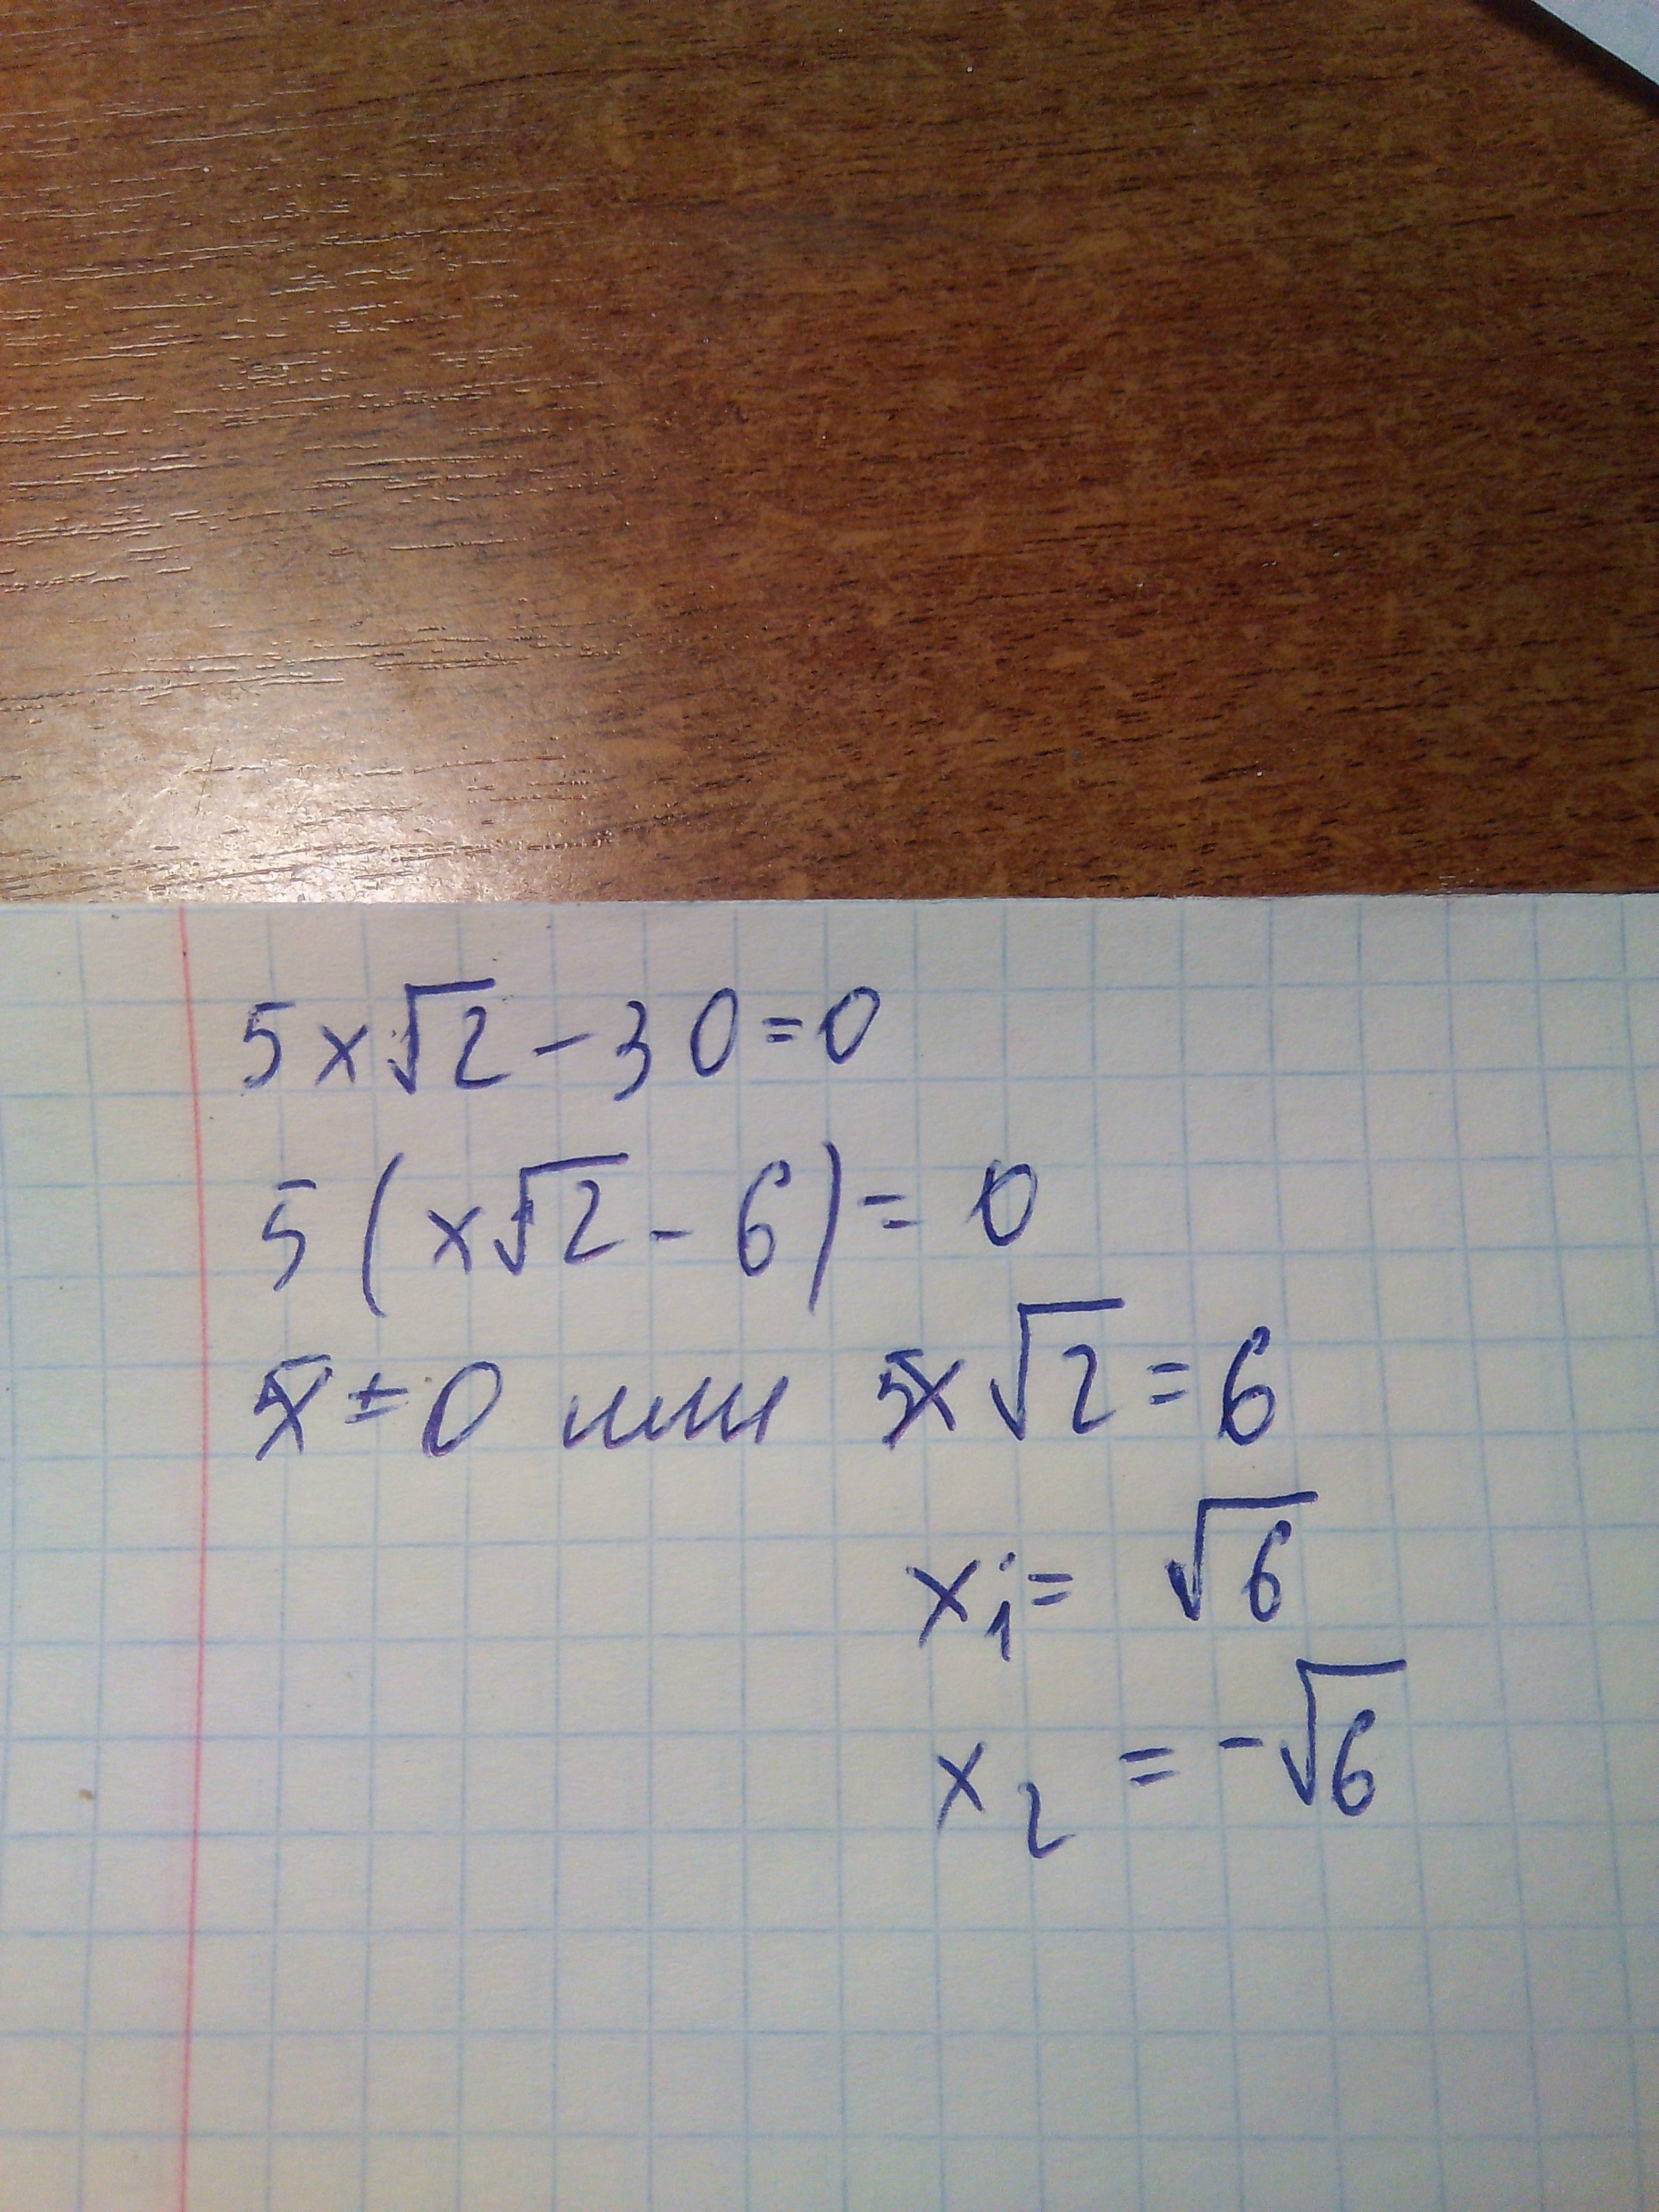 5x√2 - 30 = 0
5(x√2 - 6) = 0
x = 0 или x√2 = 6
x₁ = √6
x₂ = -√6